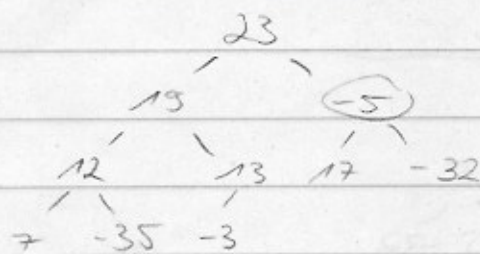 23
19 -5
12 13 17 -32
7 -35 -3